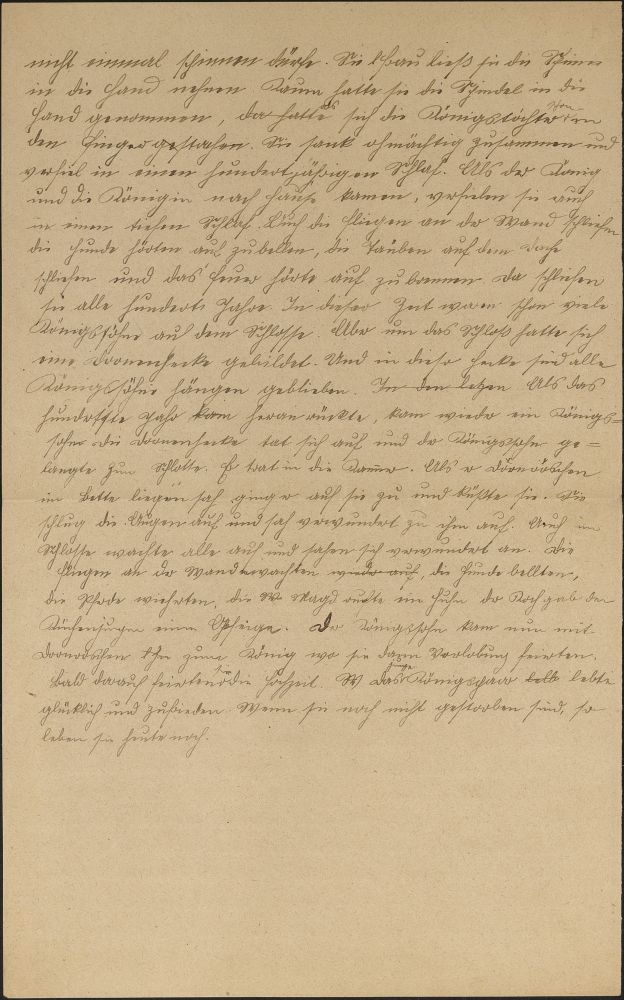 nicht einmal spinnen dürfe. Die Frau ließ sie die Spinne
in die Hand nehmen. Kaum hatte sie die Spindel in die
Hand genommen, da hatte sich die Königstochter in
den Finger gestochen. Sie sank ohnmächtig zusammen und
verfiel in einen hundertjährigen Schlaf. Als der König
und die Königin nach Hause kamen, verfielen sie auch
in einen tiefen Schlaf. Auch die Fliegen an der Wand schliefen
die Hunde hörten auf zubellen, die Tauben auf dem Dache
schliefen und das Feuer hörte auf zubrennen. Da schliefen
sie alle hundert Jahre. In dieser Zeit waren schon viele
Königssöhne auf dem Schlosse. Aber um das Schloß hatte sich
eine Dornenhecke gebildet. Und in dieser Hecke sind alle
Königssöhne hängen geblieben. In den letzen Als das
hundertste Jahr kam heran rückte, kam wieder ein Königs=
sohn. Die Dornenhecke tat sich auf und der Königssohn ge=
langte zum Schlosse. Er trat in die Kammer. Als er Dornröschen
im Bette liegen sah, ging er auf sie zu und küßte sie. Sie
schlug die Augen auf und sah verwundert zu ihm auf. Auch im
Schlosse wachte alle auf und sahen sich verwundert an. Die
Fliegen an der Wand erwachten wieder auf, die Hunde bellten,
die Pferde wieherten, die Magd rupfte ein Huhn der Koch gab den
Küchenjungen eine Ohrfeige. Der Königssohn kam nun mit
Dornröschen zum König wo sie dann Verlobung feierten.
Bald darauf feierten sie die Hochzeit. Das junge Königspaar lebte
glücklich und zufrieden. Wenn sie noch nicht gestorben sind, so
leben sie heute noch.